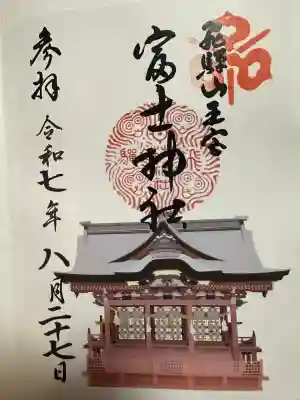 飛騨山王宮
富士神社
参拝 令和七年 八月二十七日